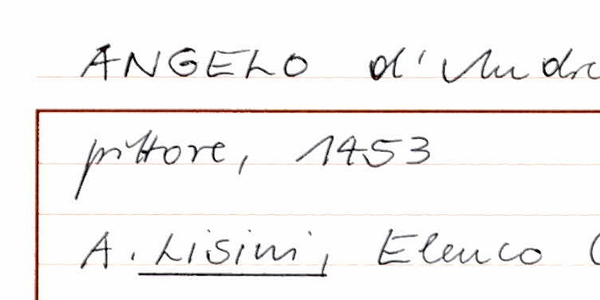 ANGELO d'Andre
pittore, 1453
A. Lisini, Elenco (